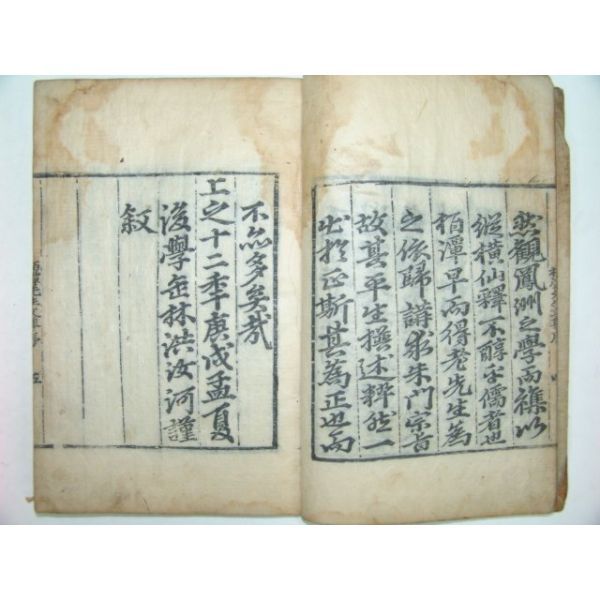 然觀鳳洲之學而襍以
縱橫仙釋不醇乎儒者也
栢潭早而得老先生爲
之依歸講求朱門宗旨
故其平生撰述粹然一
出於正斯其為正也而
不亦多矣哉
上之十二年庚戌孟夏
後學缶林洪汝河謹
敘